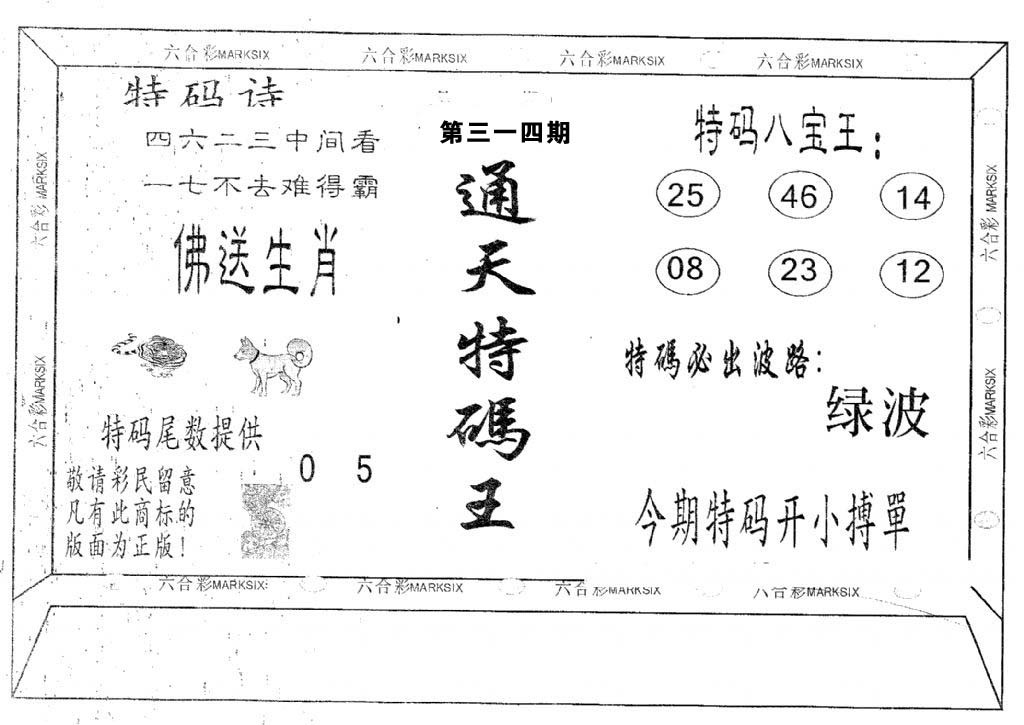 六合彩MARKSIX 六合彩MARKSIX 六合彩MARKSIX 六合彩MARKSIX
特码诗
四六二三中间看
一七不去难得霸
佛送生肖
特码尾数提供
0 5
敬请彩民留意
凡有此商标的
版面为正版！
第三一四期
通天特碼王
特码八宝王：
25 46 14
08 23 12
特碼必出波路：
绿波
今期特码开小搏單
六合彩MARKSIX
六合彩MARKSIX
六合彩MARKSIX
六合彩MARKSIX
六合彩MARKSIX 六合彩MARKSIX 六合彩MARKSIX 六合彩MARKSIX